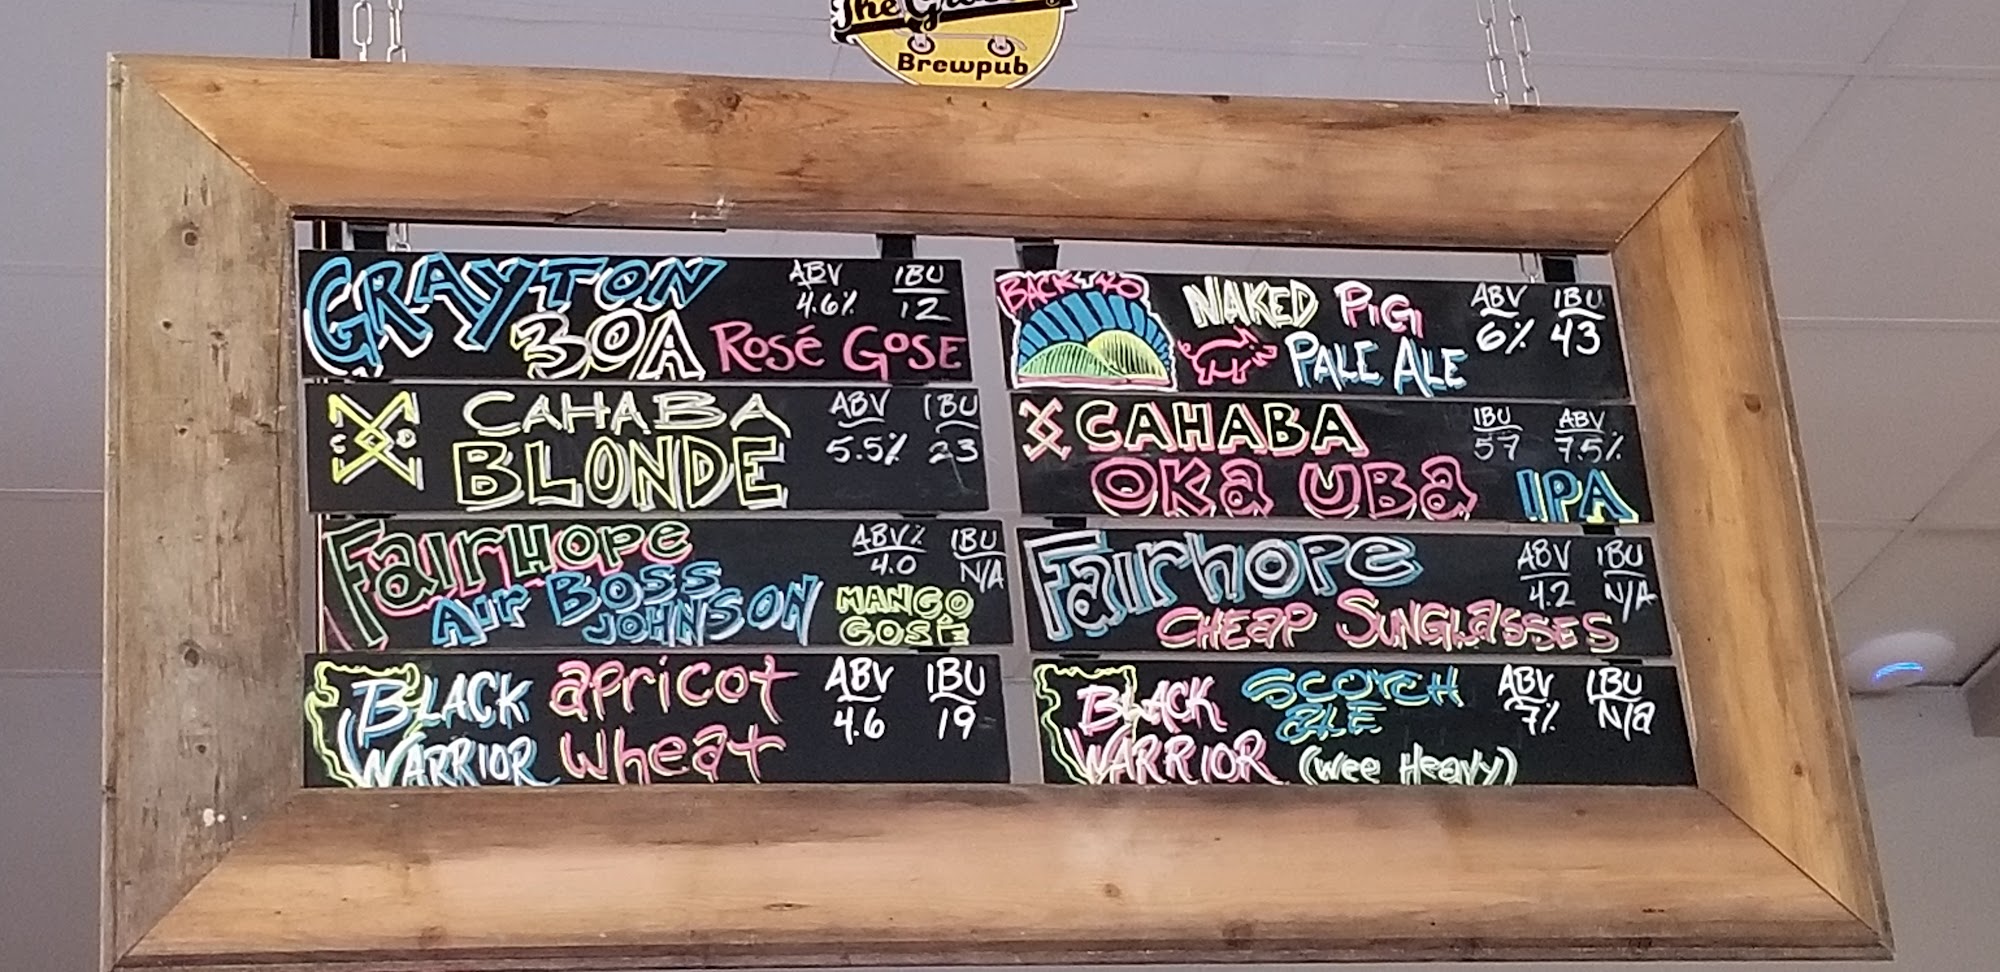 The
Brewpub
GRAYTON
30A Rosé Gose
ABV IBU
4.6% 12
BACK 40
NAKED PIG
PALE ALE
ABV IBU
6% 43
C D
CAHABA
BLONDE
ABV IBU
5.5% 23
CAHABA
OKA UBA IPA
IBU ABV
57 7.5%
FairHope
Air BOSS
JOHNSON
MANGO
GOSE
ABV% IBU
4.0 N/A
Fairhope
CHEaP SUNGLaSSES
ABV IBU
4.2 N/A
BLACK
WARRIOR
apricot
wheat
ABV IBU
4.6 19
BLACK
WARRIOR
SCOTCH
aLE
(wee Heavy)
ABV IBU
7% N/a